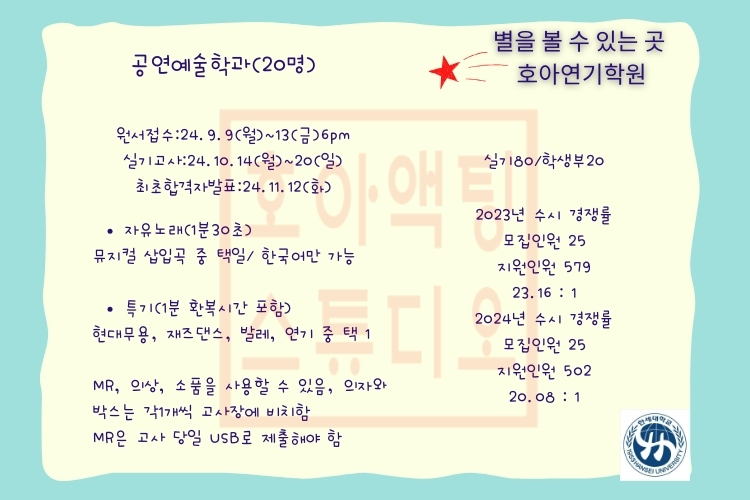 별을 볼 수 있는 곳
호아연기학원
공연예술학과(20명)
원서접수:24.9.9(월)~13(금)6pm
실기고사:24.10.14(월)~20(일)
최초합격자발표:24.11.12(화)
• 자유노래(1분30초)
뮤지컬 삽입곡 중 택일/ 한국어만 가능
• 특기(1분 환복시간 포함)
현대무용, 재즈댄스, 발레, 연기 중 택 1
MR, 의상, 소품을 사용할 수 있음, 의자와
박스는 각1개씩 고사장에 비치함
MR은 고사 당일 USB로 제출해야 함
실기80/학생부20
2023년 수시 경쟁률
모집인원 25
지원인원 579
23.16 : 1
2024년 수시 경쟁률
모집인원 25
지원인원 502
20.08 : 1
호아액팅
스튜디오
한세대학교
1953 HANSEI UNIVERSITY